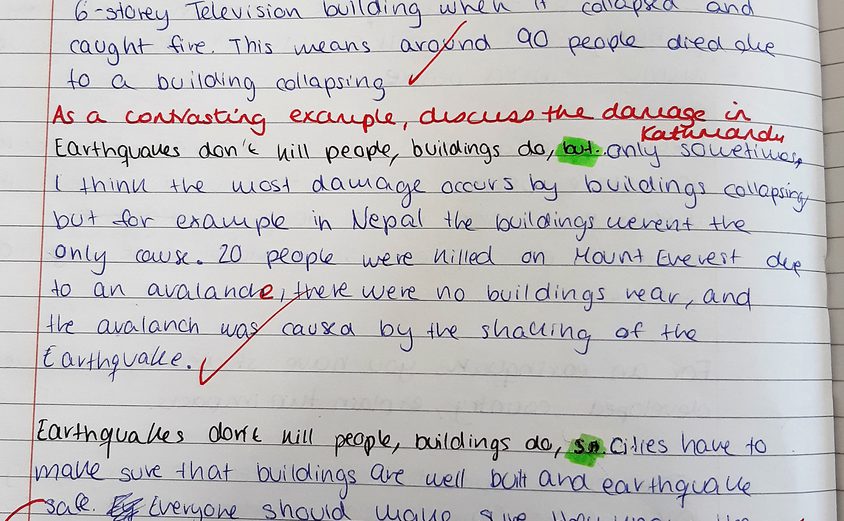 6-storey Television building when it collapsed and
caught fire. This means around 90 people died due
to a building collapsing
As a contrasting example, discuss the damage in
Kathmandu
Earthquakes don't kill people, buildings do, but only sometimes,
I think the most damage occurs by buildings collapsing
but for example in Nepal the buildings werent the
only cause. 20 people were killed on Mount Everest due
to an avalanche, there were no buildings near, and
the avalanch was caused by the shaking of the
Earthquake.
Earthquakes don't kill people, buildings do, so cities have to
make sure that buildings are well built and earthquake
safe. Everyone should make sure